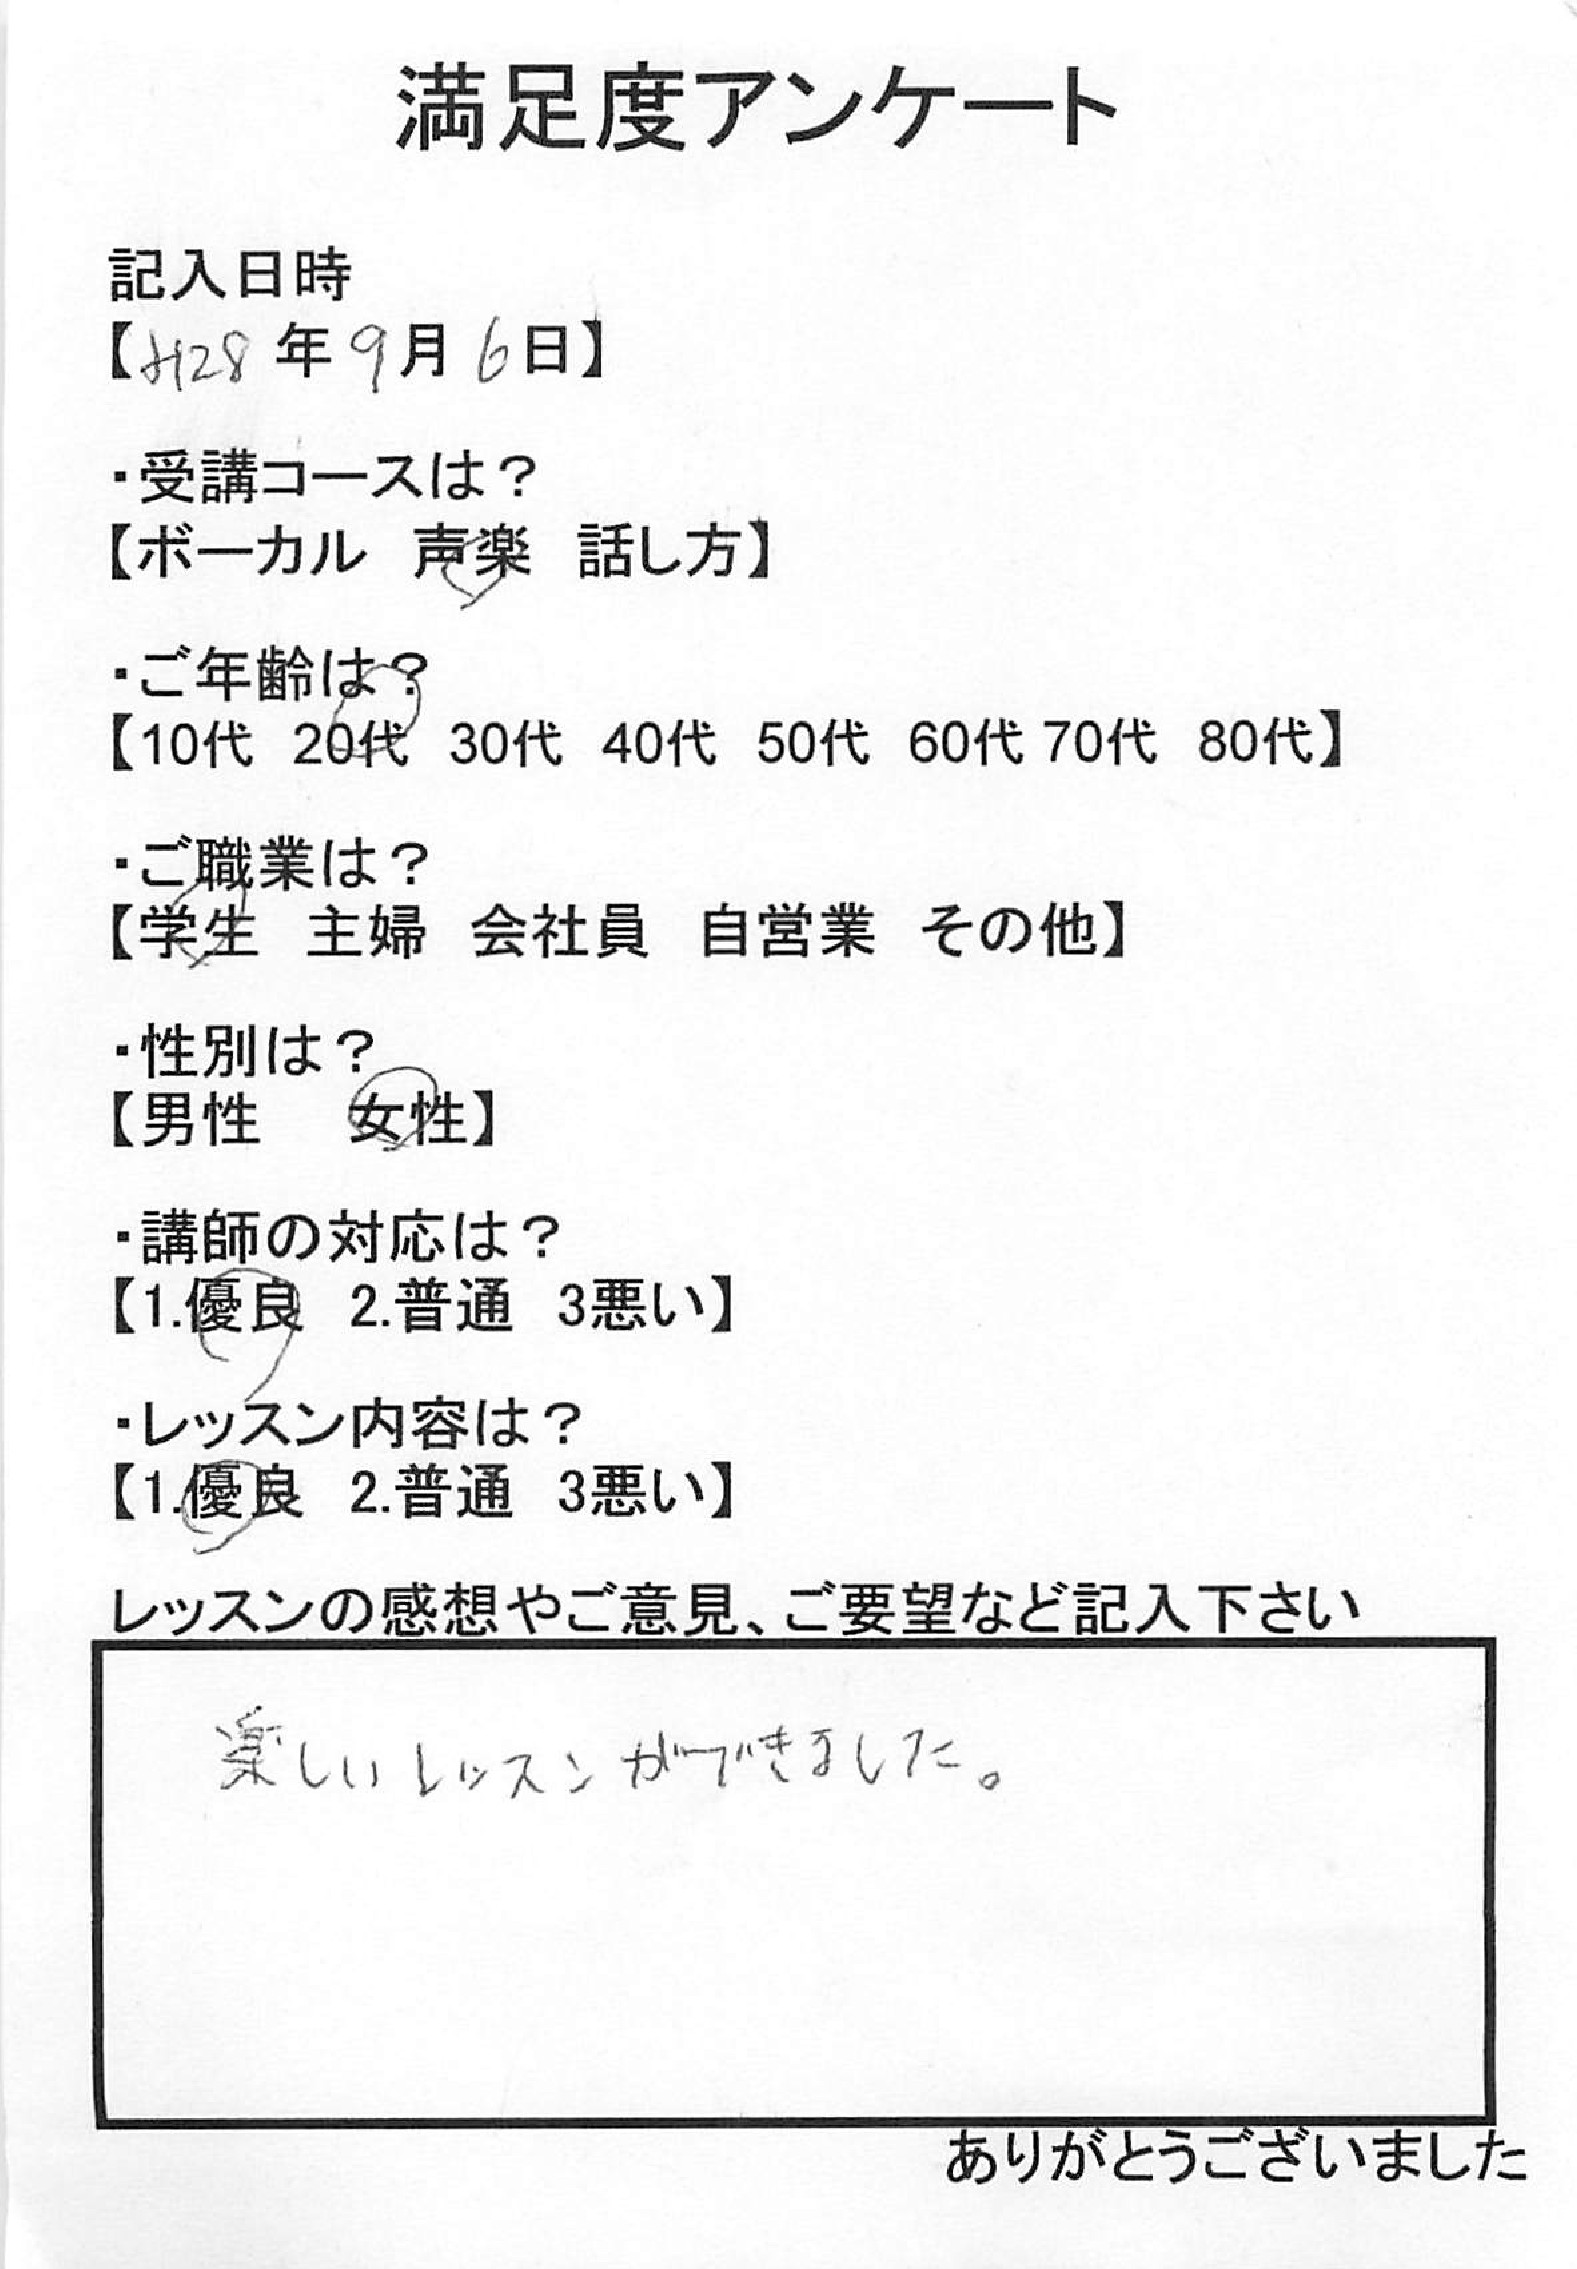 満足度アンケート
記入日時
【H28年9月6日】
・受講コースは？
【ボーカル 声楽 話し方】
・ご年齢は？
【10代 20代 30代 40代 50代 60代 70代 80代】
・ご職業は？
【学生 主婦 会社員 自営業 その他】
・性別は？
【男性 女性】
・講師の対応は？
【1.優良 2.普通 3悪い】
・レッスン内容は？
【1.優良 2.普通 3悪い】
レッスンの感想やご意見、ご要望など記入下さい
楽しいレッスンができました。
ありがとうございました